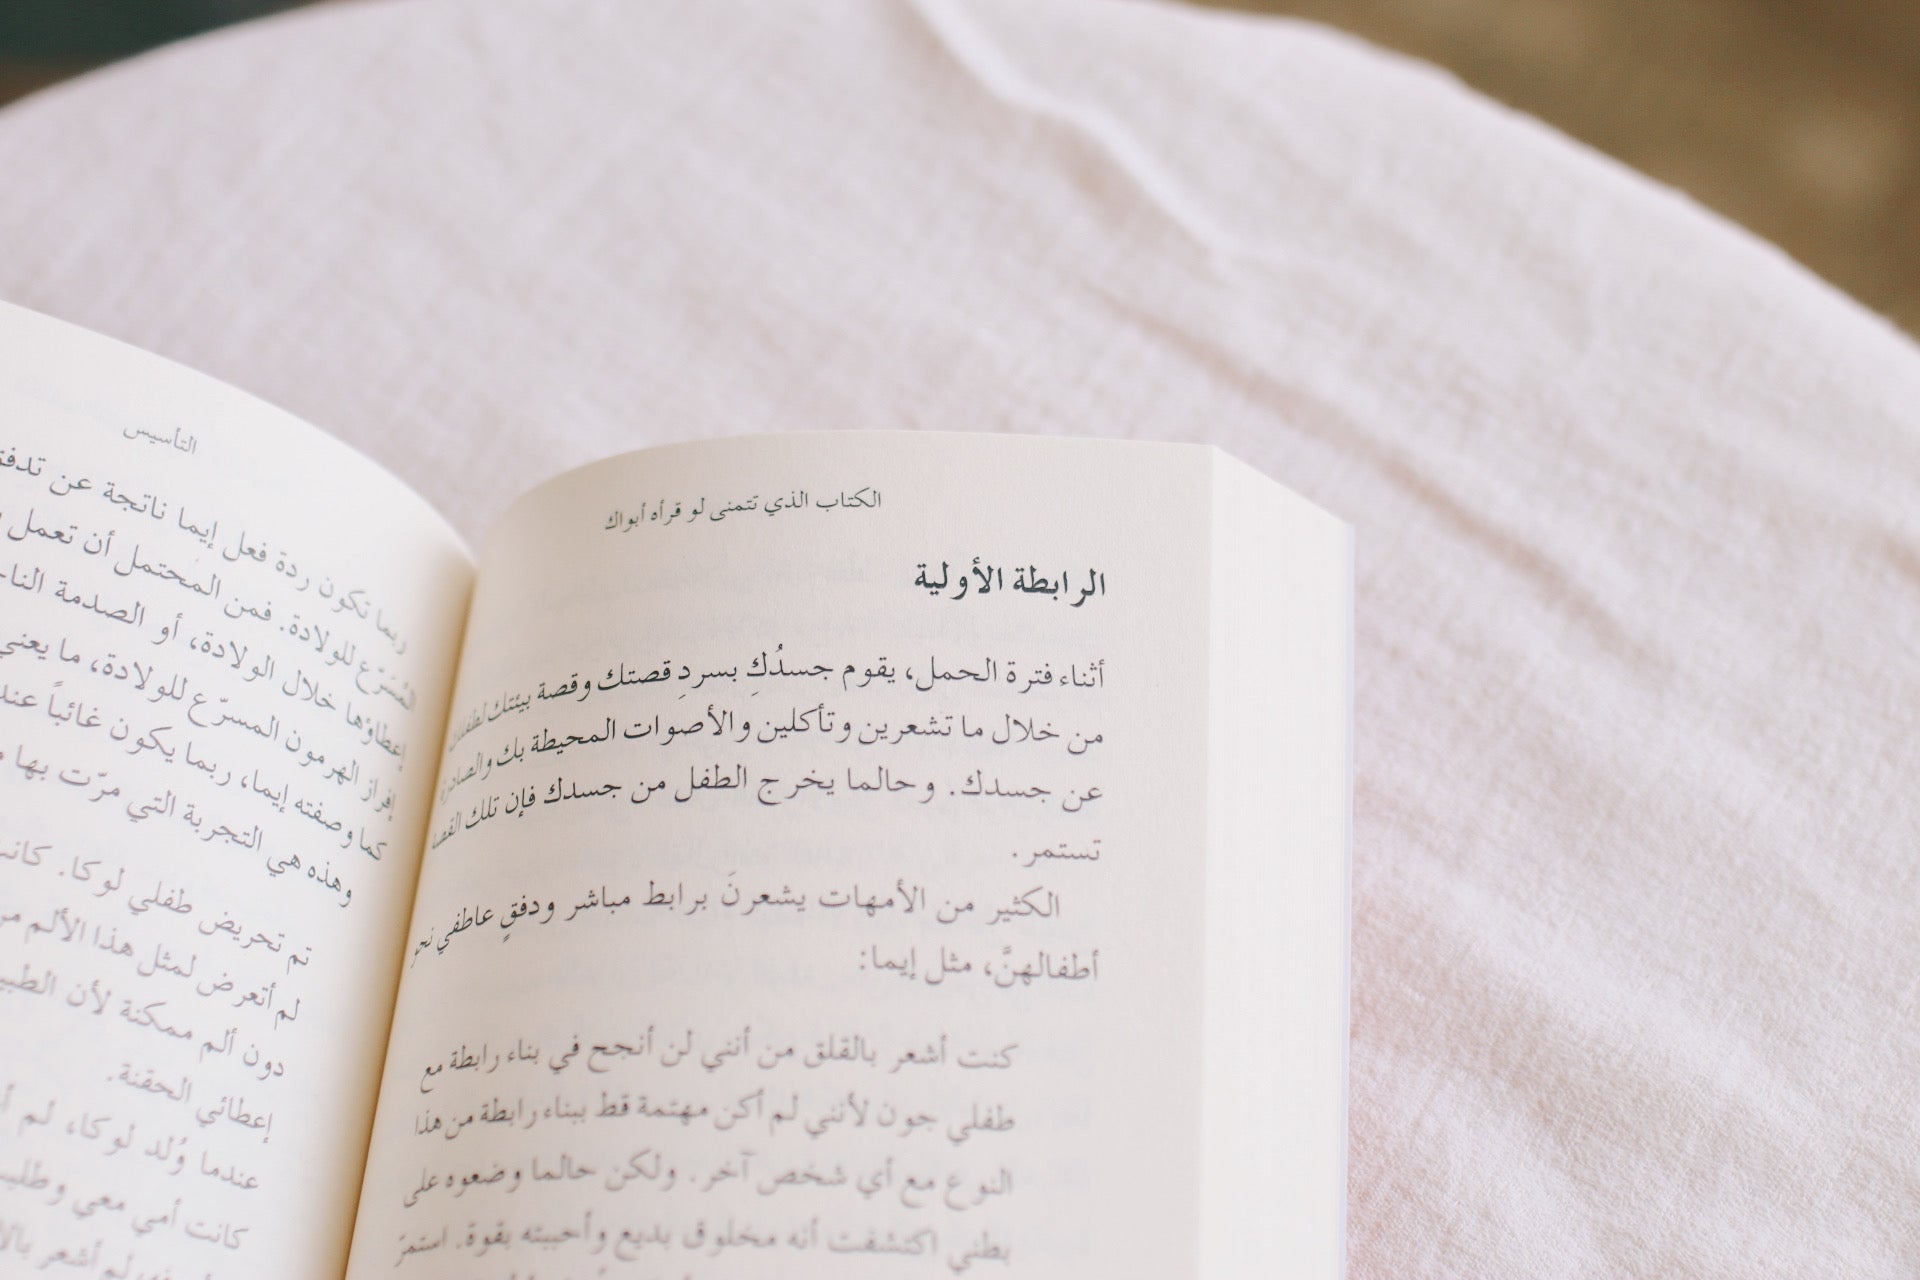 الكتاب الذي تتمنى لو قرأه أبواك
الرابطة الأولية
أثناء فترة الحمل، يقوم جسدُكِ بسردِ قصتك وقصة بيئتك لطفلك
من خلال ما تشعرين وتأكلين والأصوات المحيطة بك والصادرة
عن جسدك. وحالما يخرج الطفل من جسدك فإن تلك
تستمر.
الكثير من الأمهات يشعرنَ برابط مباشر ودفقٍ عاطفي نحو
أطفالهنَّ، مثل إيما:
كنت أشعر بالقلق من أنني لن أنجح في بناء رابطة مع
طفلي جون لأنني لم أكن مهتمة قط ببناء رابطة من هذا
النوع مع أي شخص آخر. ولكن حالما وضعوه على
بطني اكتشفت أنه مخلوق بديع وأحببته بقوة. استمرّ
التأسيس
ربما تكون ردة فعل إيما ناتجة عن
المُسَرّع للولادة. فمن المحتمل أن تعمل
إعطاؤها خلال الولادة، أو الصدمة
إفراز الهرمون المسرّع للولادة، ما يعني
كما وصفته إيما، ربما يكون غائباً
وهذه هي التجربة التي مرّت بها
تم تحريض طفلي لوكا. كانت
لم أتعرض لمثل هذا الألم من
دون ألم ممكنة لأن
إعطائي الحقنة.
عندما وُلد لوكا، لم
كانت أمي معي
لم أشعر